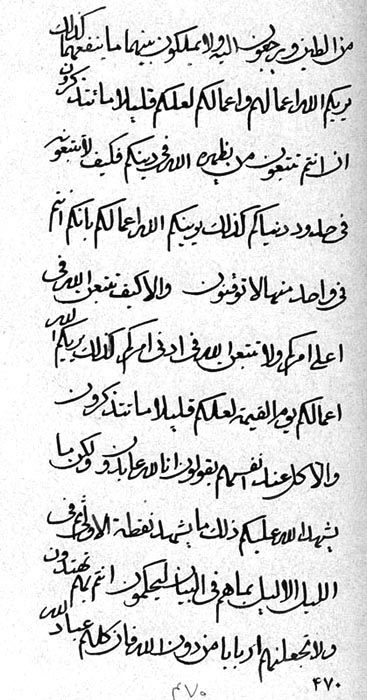 من الطين ويرجعون اليه ولا يملكون بينهما ما ينفعهما كذلك
يريكم الله اعمالهم واعمالكم لعلكم قليلا ما تتذكرون
ان انتم تتبعون من يظهره الله في دينكم فكيف لا تتبعونه
في حدود دنياكم كذلك يريكم الله اعمالكم بانكم انتم
في واحد منهما لا توقنون والا كيف تتبعن الله في
اعلى امركم ولا تتبعن الله في ادنى امركم كذلك يريكم الله
اعمالكم يوم القيمة لعلكم قليلا ما تتذكرون
والا كل عند انفسهم يقولون انا لله عابدون ولكن ما
يشهد الله عليكم ذلك ما يشهد نقطة الاولى في
الليل الاليل بما هم في البيان ليحكمون انتم بهم تهتدون
ولا تجعلنهم اربابا من دون الله فان كلهم عباد الله
۴۷۰
۴۷۰